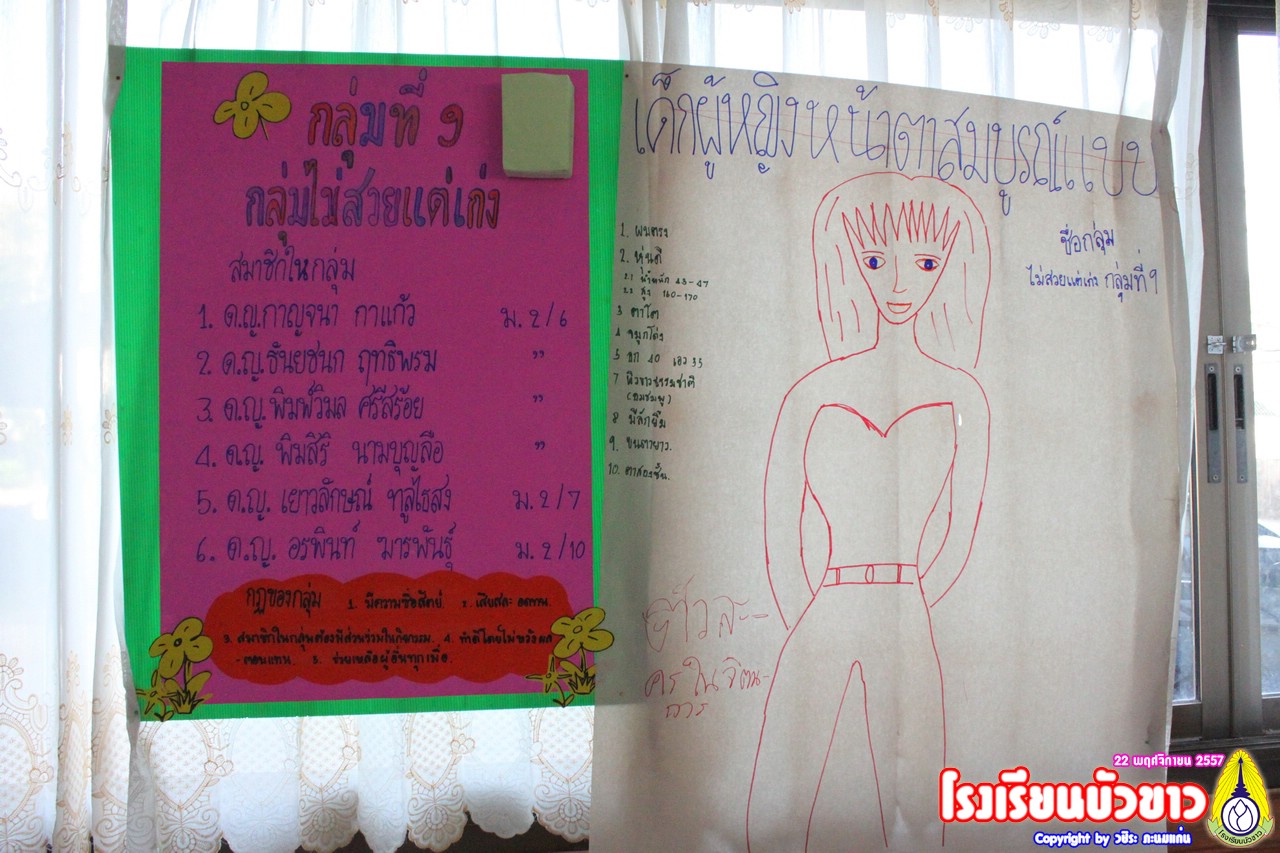 กลุ่มที่ ๑
กลุ่มไม่สวยแต่เก่ง
สมาชิกในกลุ่ม
1. ด.ญ.กาญจนา กาแก้ว ม.2/6
2. ด.ญ.ธันยชนก ฤทธิพรม "
3. ด.ญ.พิมพ์วิมล ศรีสร้อย "
4. ด.ญ. พิมสิริ นามบุญลือ "
5. ด.ญ. เยาวลักษณ์ ทูลไธสง ม.2/7
6. ด.ญ. อรพินท์ ฆารพันธุ์ ม.2/10
กฎของกลุ่ม 1. มีความซื่อสัตย์. 2. เสียสละ อดทน.
3. สมาชิกในกลุ่มต้องมีส่วนร่วมในกิจกรรม. 4. ทำดีโดยไม่หวังผล
-ตอบแทน. 5. ช่วยเหลือผู้อื่นทุกเมื่อ.
เด็กผู้หญิงหน้าตาสมบูรณ์แบบ
ชื่อกลุ่ม
ไม่สวยแต่เก่ง กลุ่มที่ ๑
1. ผมตรง
2. หุ่นดี
2.1 น้ำหนัก 43-47
2.2 สูง 160-170
3 ตาโต
4 จมูกโด่ง
5 อก 40 เอว 35
7 ผิวขาวธรรมชาติ
(อมชมพู)
8 มีลักยิ้ม
9. ขนตายาว.
10. ตาสองชั้น.
ตัวละ-
ครในจิตน-
าการ
22 พฤศจิกายน 2557
โรงเรียนบัวขาว
Copyright by วชิระ คะนมแก่น
โรงเรียนบัวขาว